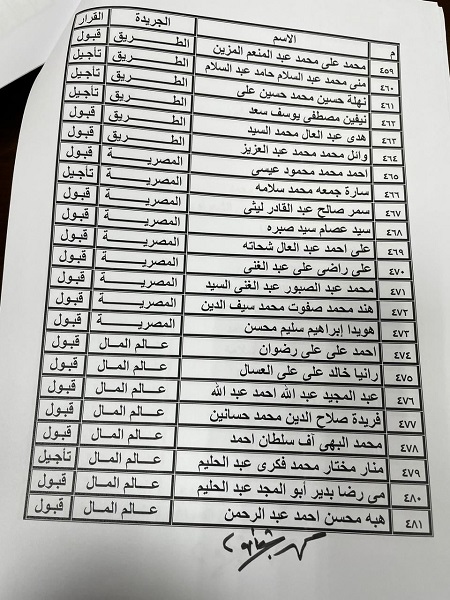 م الاسم الجريدة القرار
٤٥٩ محمد على محمد عبد المنعم المزين الطريق قبول
٤٦٠ منى محمد عبد السلام حامد عبد السلام الطريق تأجيل
٤٦١ نهلة حسين محمد حسين على الطريق تأجيل
٤٦٢ نيفين مصطفى يوسف سعد الطريق تأجيل
٤٦٣ هدى عبد العال محمد السيد الطريق قبول
٤٦٤ وائل محمد محمد عبد العزيز الطريق قبول
٤٦٥ احمد محمد محمود عيسى المصرية قبول
٤٦٦ سارة جمعه محمد سلامه المصرية تأجيل
٤٦٧ سمر صالح عبد القادر ليثى المصرية قبول
٤٦٨ سيد عصام سيد صبره المصرية قبول
٤٦٩ على احمد عبد العال شحاته المصرية قبول
٤٧٠ على راضى على عبد الغنى المصرية قبول
٤٧١ محمد عبد الصبور عبد الغنى السيد المصرية قبول
٤٧٢ هند محمد صفوت محمد سيف الدين المصرية قبول
٤٧٣ هويدا إبراهيم سليم محسن المصرية قبول
٤٧٤ احمد على على رضوان عالم المال قبول
٤٧٥ رانيا خالد على على العسال عالم المال قبول
٤٧٦ عبد المجيد عبد الله احمد عبد الله عالم المال قبول
٤٧٧ فريدة صلاح الدين محمد حسانين عالم المال قبول
٤٧٨ محمد البهى آف سلطان احمد عالم المال قبول
٤٧٩ منار مختار محمد فكرى عبد الحليم عالم المال تأجيل
٤٨٠ مى رضا بدير أبو المجد عبد الحليم عالم المال قبول
٤٨١ هبه محسن احمد عبد الرحمن عالم المال قبول